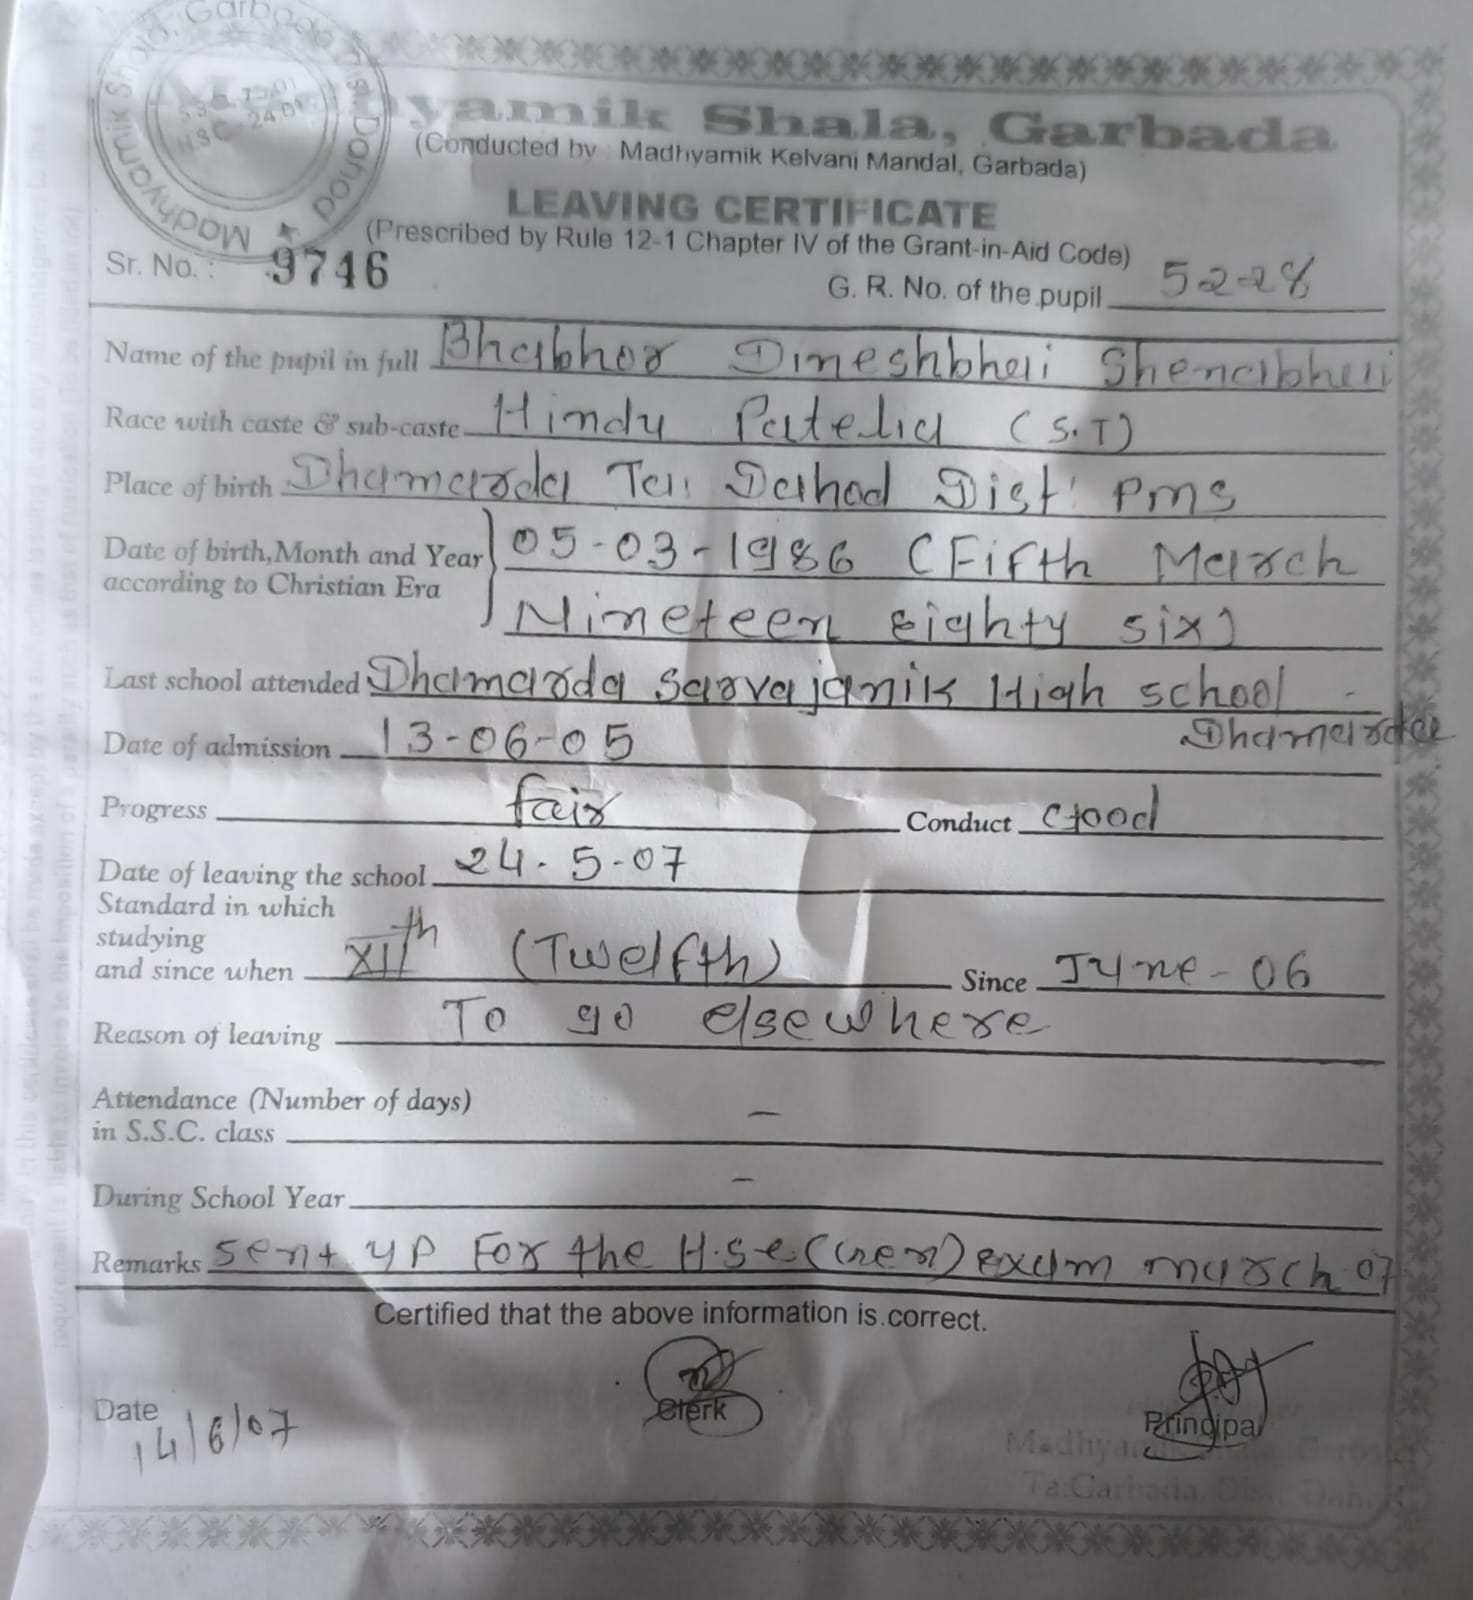 Madhyamik Shala, Garbada Dist. Dahod
Madhyamik Shala, Garbada
(Conducted by : Madhyamik Kelvani Mandal, Garbada)
LEAVING CERTIFICATE
(Prescribed by Rule 12-1 Chapter IV of the Grant-in-Aid Code)
Sr. No. : 9746
G. R. No. of the pupil 5228
Name of the pupil in full Bhabhor Dineshbhai Shenabhai
Race with caste & sub-caste Hindu Patelia (S.T)
Place of birth Dhamarda Ta: Dahod Dist: PMS
Date of birth, Month and Year 05-03-1986 (Fifth March
according to Christian Era Nineteen eighty six)
Last school attended Dhamarda Sarvajanik High school
Dhamarda
Date of admission 13-06-05
Progress fair Conduct Good
Date of leaving the school 24.5-07
Standard in which
studying
and since when XIIth (Twelfth) Since June-06
Reason of leaving To go elsewhere
Attendance (Number of days)
in S.S.C. class –
During School Year –
Remarks Sent up For the H.S.C (Gen) exam march 07
Certified that the above information is correct.
Date 14/6/07
Clerk
Principal